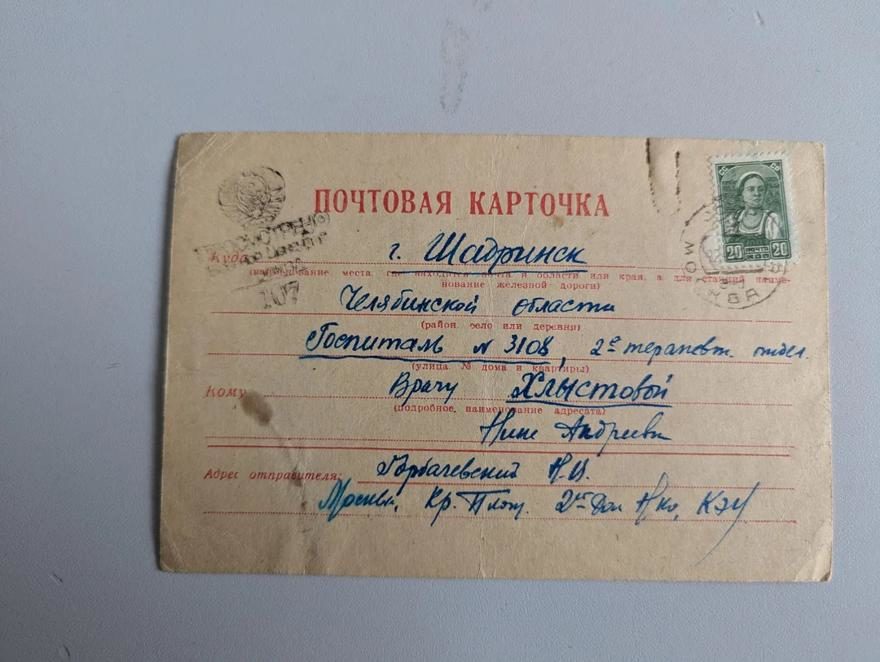 ПОЧТОВАЯ КАРТОЧКА
СС СР
20 ПОЧТА 20
МОСКВА
ПРОСМОТРЕНО
107
Куда г. Шадринск
(наименование места, где находится почта и области или края, а для станций наиме-
нование железной дороги)
Челябинской области
(район, село или деревня)
Госпиталь № 3108, 2е терапевт. отдел.
(улица № дома и квартиры)
Кому Врачу Хлыстовой
(подробное наименование адресата)
Нине Андреевне
Адрес отправителя: Горбачевский Н.И.
Москва, Кр. Площ. 2й Дом Нко, КЭУ